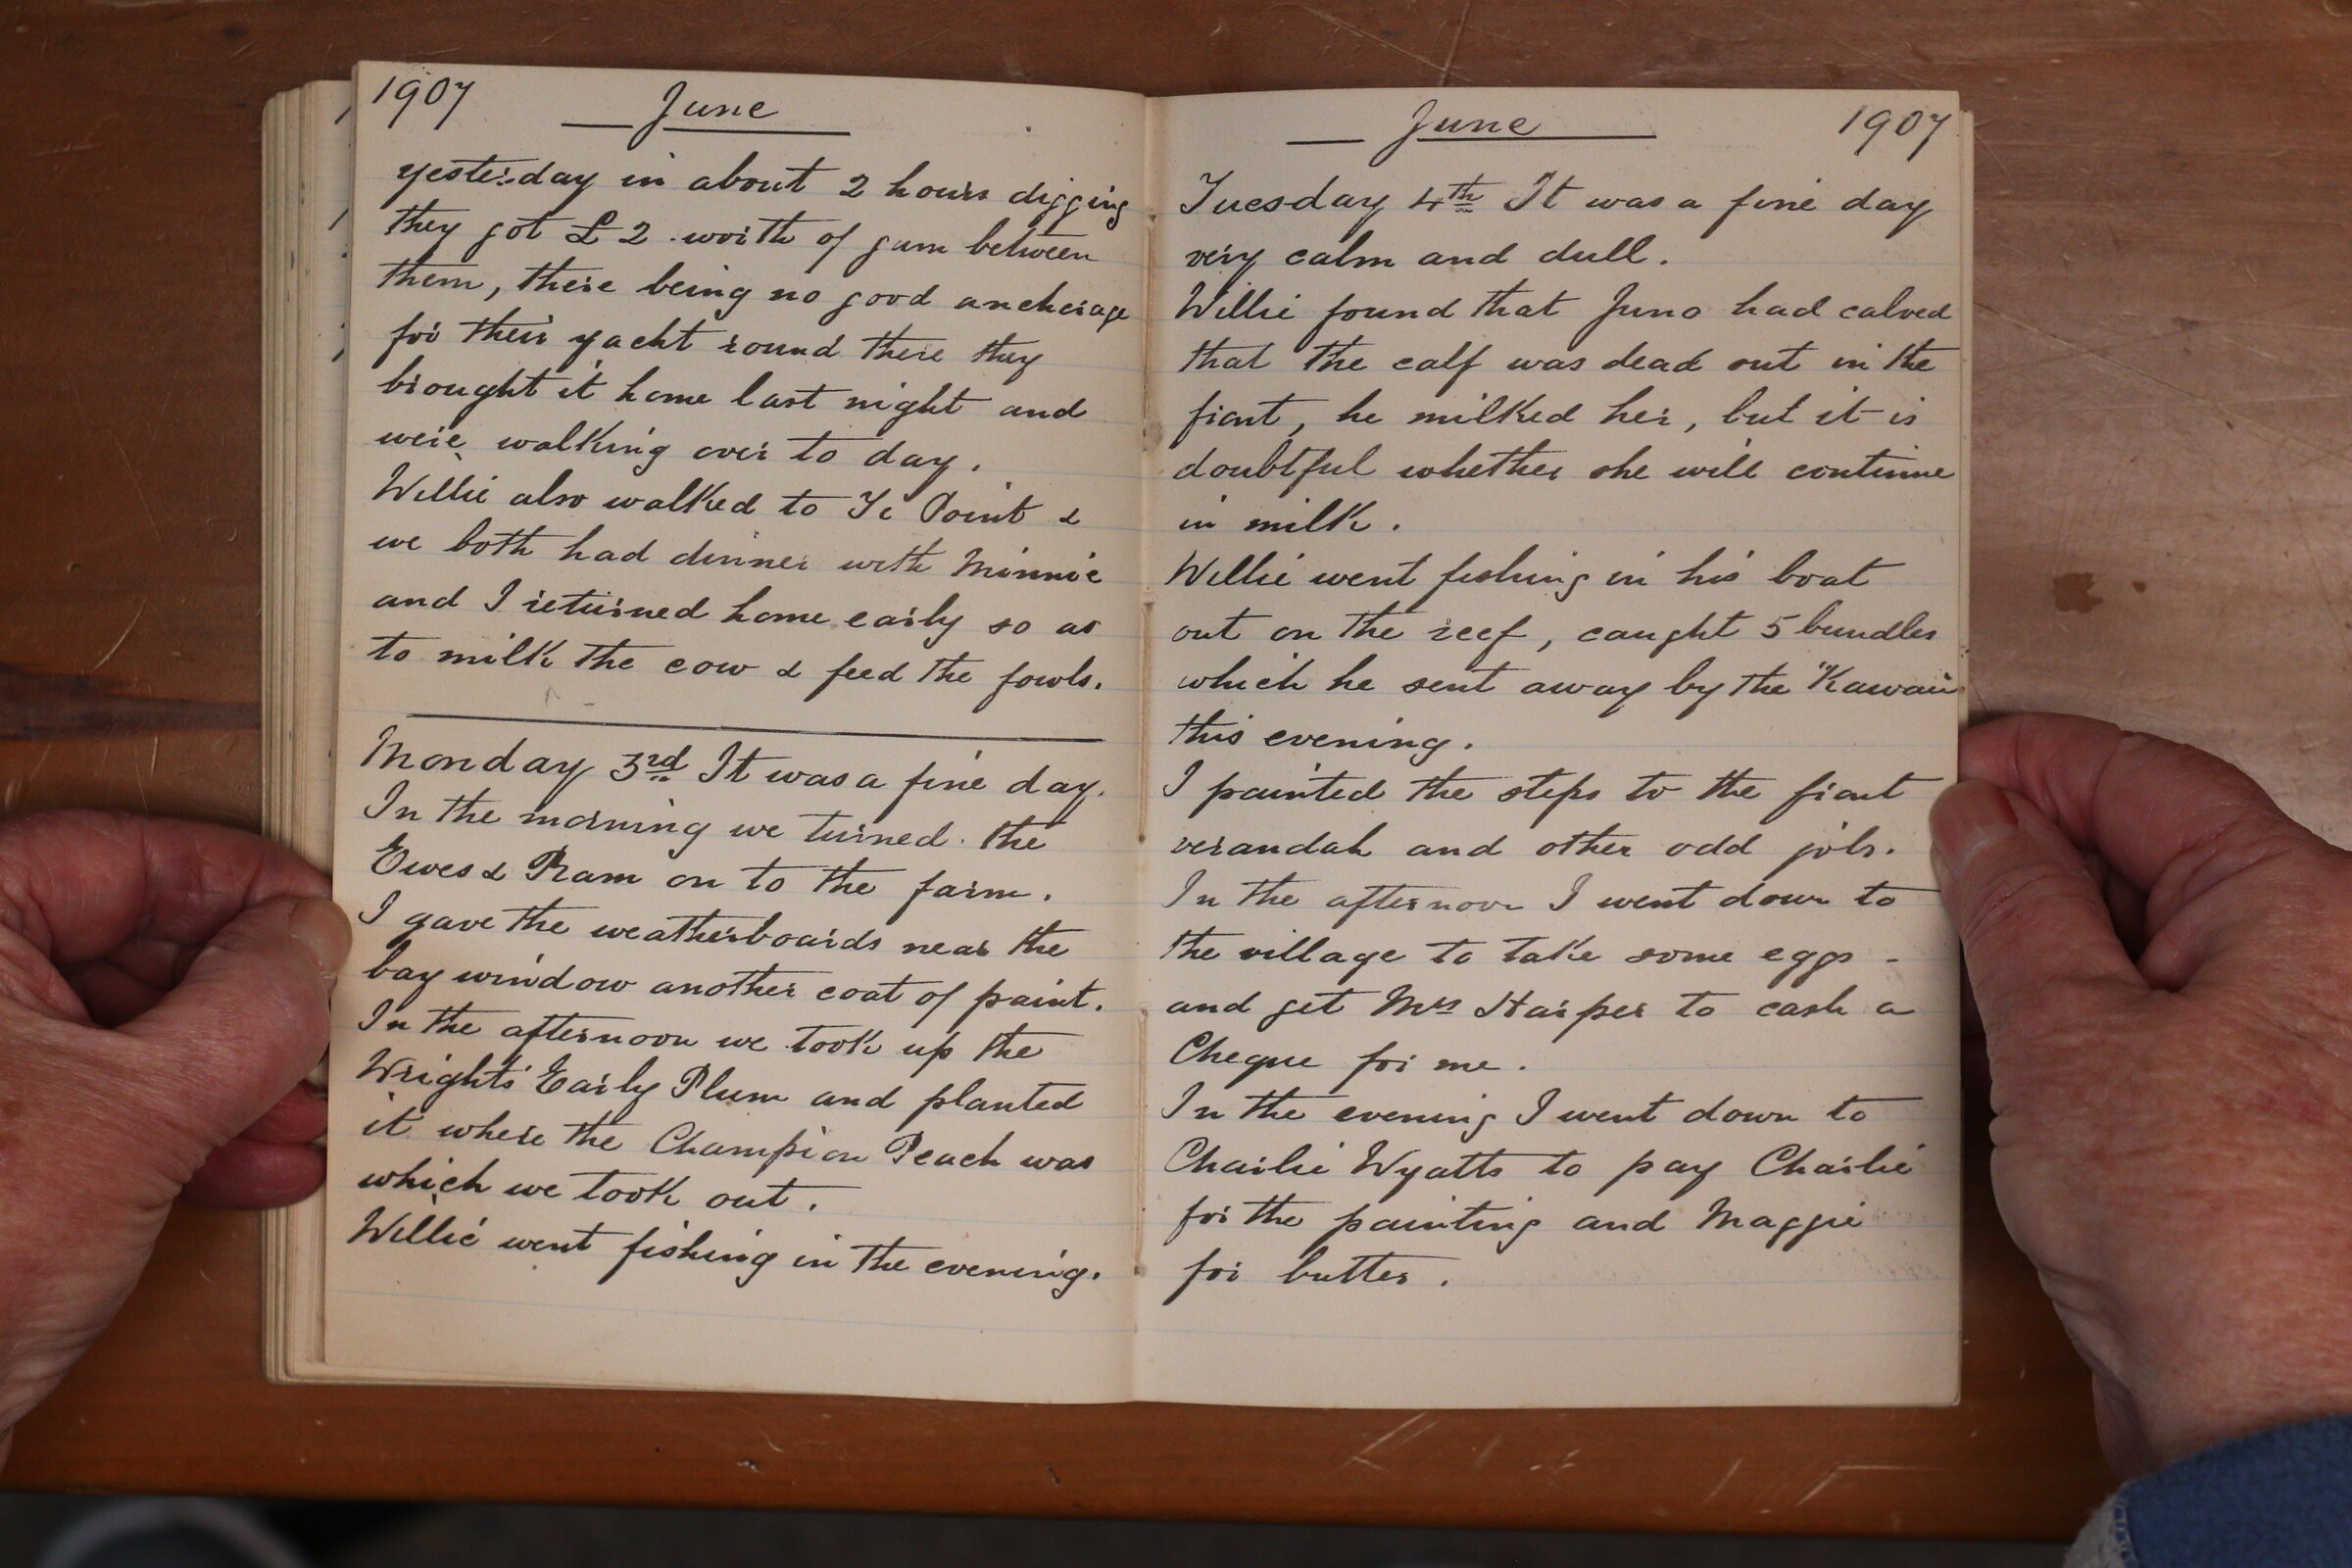 1907
June
yesterday in about 2 hours digging
they got £2 worth of gum between
them, there being no good ancherage
for their yacht round there they
brought it home last night and
were walking over to day.
Willie also walked to Ti Point &
we both had dinner with Minnie
and I returned home early so as
to milk the cow & feed the fowls.
Monday 3rd It was a fine day.
In the morning we turned the
Ewes & Ram on to the farm.
I gave the weatherboards near the
bay window another coat of paint.
In the afternoon we took up the
Wrights' Early Plum and planted
it where the Champion Peach was
which we took out.
Willie went fishing in the evening.
June 1907
Tuesday 4th It was a fine day
very calm and dull.
Willie found that Juno had calved
that the calf was dead out in the
front, he milked her, but it is
doubtful whether she will continue
in milk.
Willie went fishing in his boat
out on the reef, caught 5 bundles
which he sent away by the "Kawau
this evening.
I painted the steps to the front
verandah and other odd jobs.
In the afternoon I went down to
the village to take some eggs -
and get Mrs Harper to cash a
Cheque for me.
In the evening I went down to
Charlie Wyatts to pay Charlie
for the painting and Maggie
for butter.